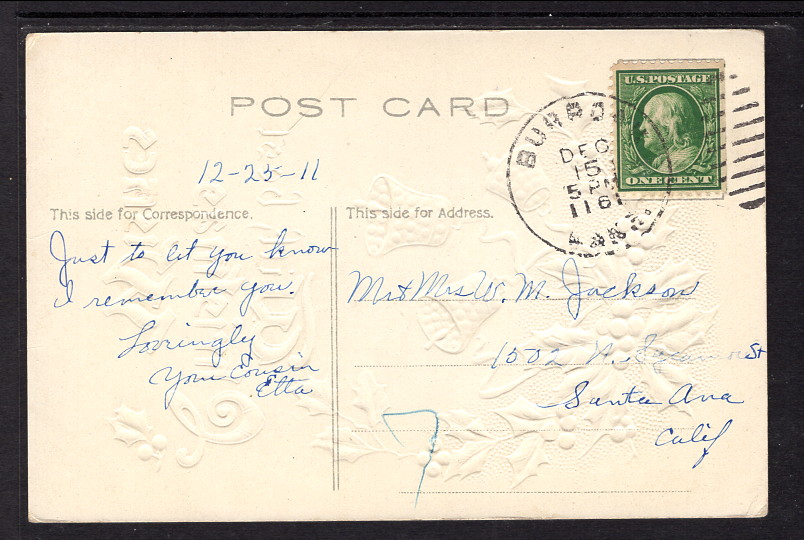 POST CARD
U.S. POSTAGE
ONE CENT
DEC
15
5 PM
1161
KANS.
12-25-11
This side for Correspondence.
This side for Address.
Just to let you know
I remember you.
Lovingly
Your Cousin
Etta
Mr & Mrs W. M. Jackson
1502 N. Sycamore St
Santa Ana
Calif